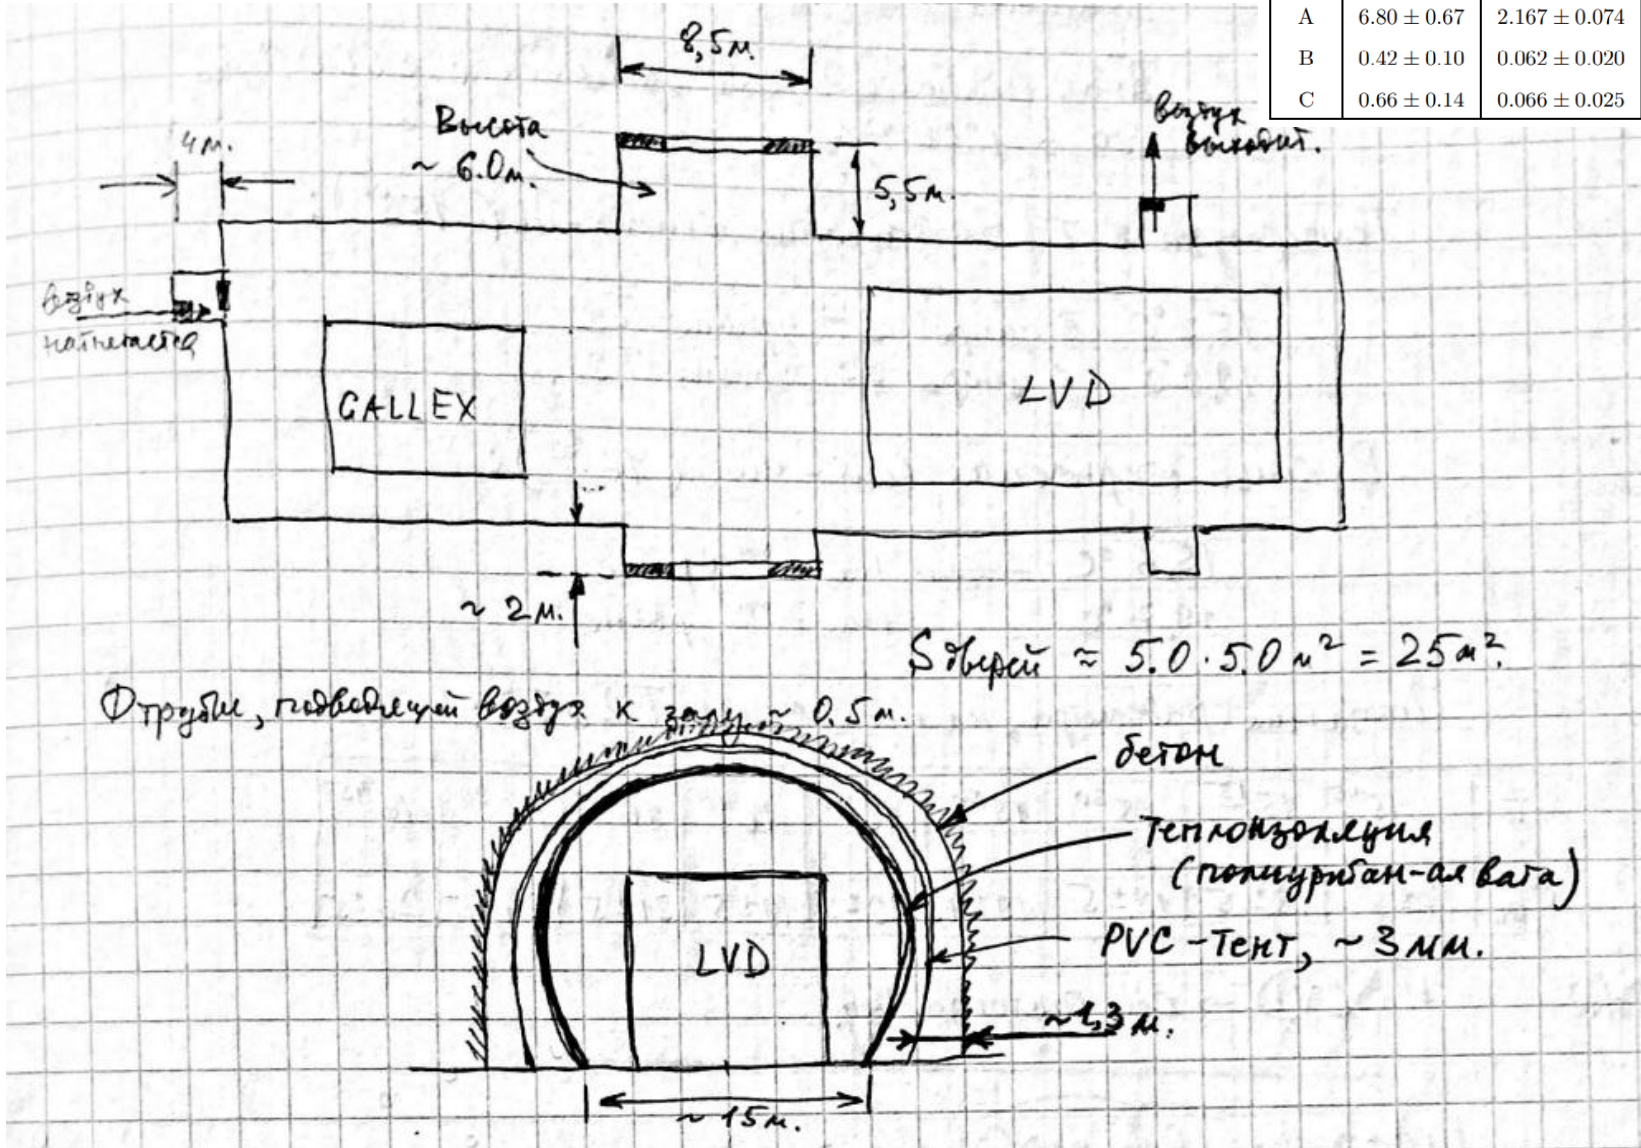 A 6.80 ± 0.67 2.167 ± 0.074
B 0.42 ± 0.10 0.062 ± 0.020
C 0.66 ± 0.14 0.066 ± 0.025
8,5м.
Высота
~ 6.0м.
4м.
5,5м.
воздух
выходит.
воздух
нагнетается
GALLEX
LVD
~ 2м.
S дверей ≈ 5.0 · 5.0 м² = 25м².
Ф трубы, подводящей воздух к залу ~ 0.5м.
бетон
Теплоизоляция
(полиуритан-ая вата)
LVD
PVC-тент, ~3мм.
~1,3м.
~15м.